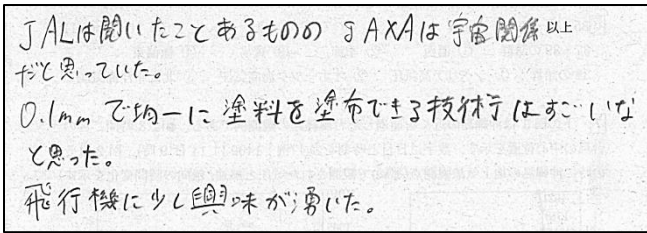 JALは聞いたことあるものの JAXAは宇宙関係以上
だと思っていた。
0.1mm で均一に塗料を塗布できる技術はすごいな
と思った。
飛行機に少し興味が湧いた。